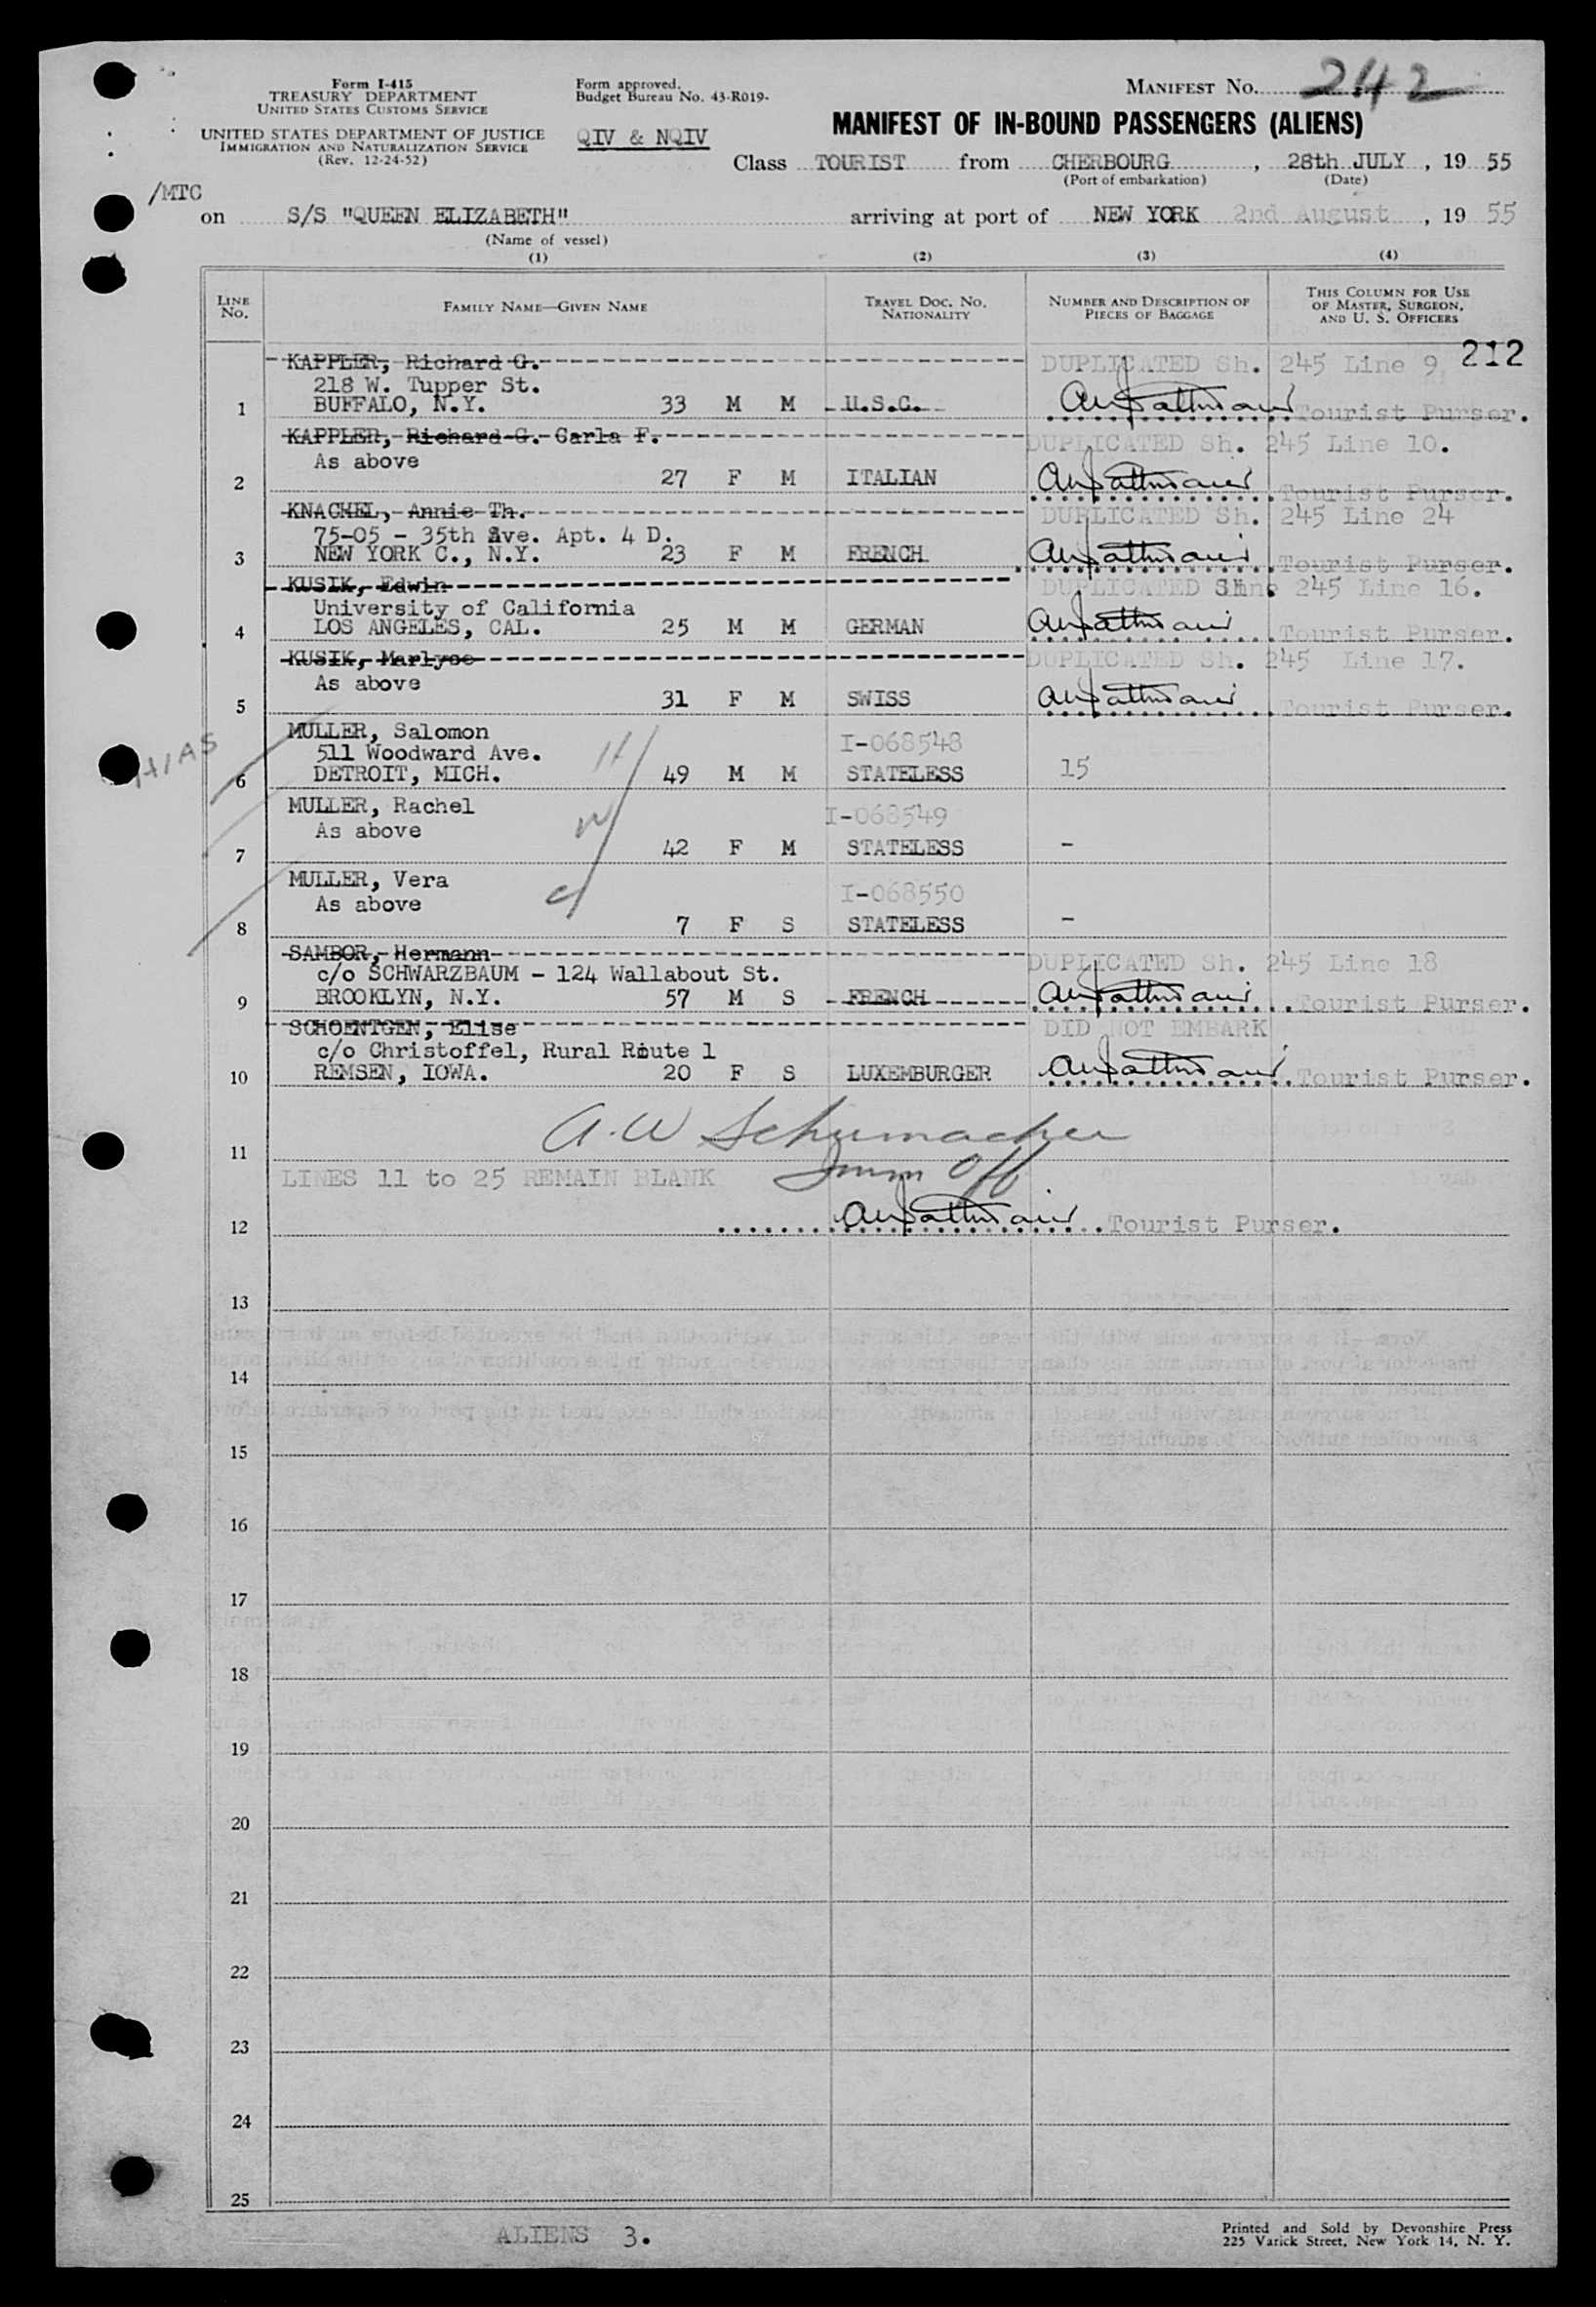 Form I-415
TREASURY DEPARTMENT
UNITED STATES CUSTOMS SERVICE
UNITED STATES DEPARTMENT OF JUSTICE
IMMIGRATION AND NATURALIZATION SERVICE
(Rev. 12-24-52)
Form approved.
Budget Bureau No. 43-R019-
QIV & NQIV
MANIFEST No. 242
MANIFEST OF IN-BOUND PASSENGERS (ALIENS)
Class TOURIST from CHERBOURG, 28th JULY, 19 55
(Port of embarkation) (Date)
/MTC
on S/S "QUEEN ELIZABETH" arriving at port of NEW YORK 2nd August, 19 55
(Name of vessel)
(1) (2) (3) (4)
LINE No. FAMILY NAME—GIVEN NAME TRAVEL DOC. NO. NATIONALITY NUMBER AND DESCRIPTION OF PIECES OF BAGGAGE THIS COLUMN FOR USE OF MASTER, SURGEON, AND U. S. OFFICERS
KAPPLER, Richard G. DUPLICATED Sh. 245 Line 9 212
218 W. Tupper St.
1 BUFFALO, N.Y. 33 M M U.S.C. Tourist Purser.
KAPPLER, Richard G. Carla F. DUPLICATED Sh. 245 Line 10.
As above
2 27 F M ITALIAN Tourist Purser.
KNACHEL, Annie Th. DUPLICATED Sh. 245 Line 24
75-05 - 35th Ave. Apt. 4 D.
3 NEW YORK C., N.Y. 23 F M FRENCH Tourist Purser.
KUSIK, Edwin DUPLICATED 245 Line 16.
University of California
4 LOS ANGELES, CAL. 25 M M GERMAN Tourist Purser.
KUSIK, Marlyse DUPLICATED Sh. 245 Line 17.
As above
5 31 F M SWISS Tourist Purser.
MULLER, Salomon I-068548
511 Woodward Ave. H/
HIAS 6 DETROIT, MICH. 49 M M STATELESS 15
MULLER, Rachel I-068549
As above W/
7 42 F M STATELESS -
MULLER, Vera I-068550
As above C/
8 7 F S STATELESS -
SAMBOR, Hermann DUPLICATED Sh. 245 Line 18
c/o SCHWARZBAUM - 124 Wallabout St.
9 BROOKLYN, N.Y. 57 M S FRENCH Tourist Purser.
SCHOENTGEN, Elise DID NOT EMBARK
c/o Christoffel, Rural Route 1
10 REMSEN, IOWA. 20 F S LUXEMBURGER Tourist Purser.
A.W Schumacher
11
LINES 11 to 25 REMAIN BLANK Imm Off
12 Tourist Purser.
13
14
15
16
17
18
19
20
21
22
23
24
25
ALIENS 3.
Printed and Sold by Devonshire Press
225 Varick Street, New York 14, N. Y.